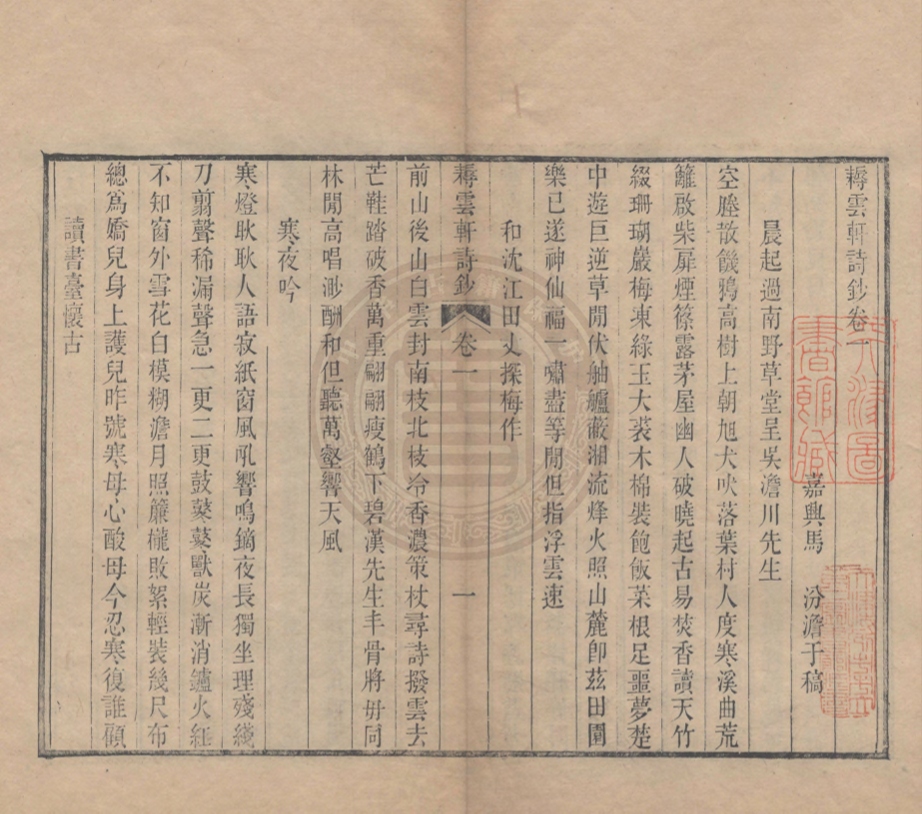 耨雲軒詩鈔卷一
嘉興馬 汾澹于稿
晨起過南野草堂呈吳澹川先生
空塍散饑鴉高樹上朝旭犬吠落葉村人度寒溪曲荒
籬啟柴扉煙篠露茅屋幽人破曉起古易焚香讀天竹
綴珊瑚巖梅凍綠玉大裘木棉裝飽飯菜根足噩夢楚
中遊巨逆草閒伏舳艫蔽湘流烽火照山麓卽茲田園
樂已遂神仙福一嘯盡等閒但指浮雲速
和沈江田丈探梅作
耨雲軒詩鈔 卷一 一
前山後山白雲封南枝北枝冷香濃策杖尋詩撥雲去
芒鞋踏破香萬重翩翩瘦鶴下碧漢先生丰骨將毋同
林閒高唱渺酬和但聽萬壑響天風
寒夜吟
寒燈耿耿人語寂紙窗風吼響鳴鏑夜長獨坐理殘綫
刀翦聲稀漏聲急一更二更鼓鼕鼕獸炭漸消鑪火紅
不知窗外雪花白模糊澹月照簾櫳敗絮輕裝幾尺布
總爲嬌兒身上護兒昨號寒母心酸母今忍寒復誰顧
讀書臺懷古